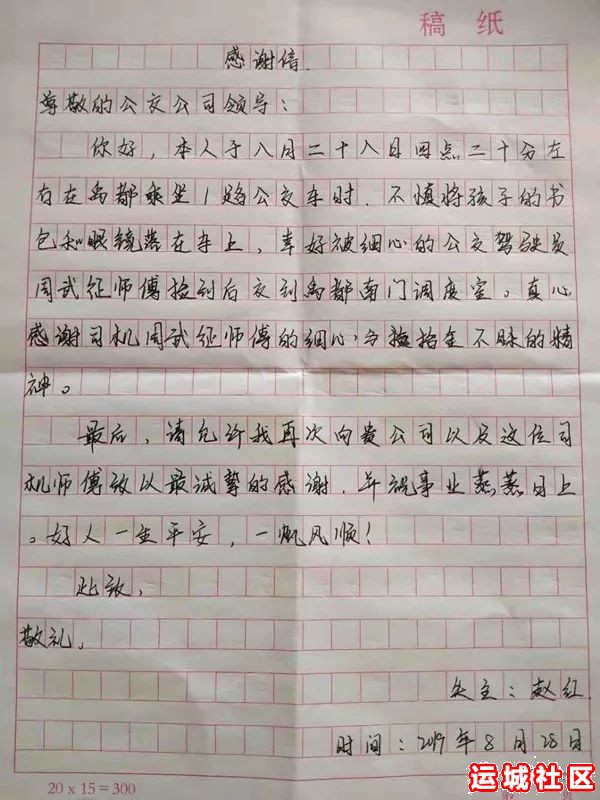 稿 纸
感谢信.
尊敬的公交公司领导:
你好,本人于八月二十八日四点二十分左
右在禹都乘坐1路公交车时.不慎将孩子的书
包和眼镜落在车上,幸好被细心的公交驾驶员
周武征师傅捡到后交到禹都南门调度室。真心
感谢司机周武征师傅的细心,与拾金不昧的精
神。
最后,请允许我再次向贵公司以及这位司
机师傅致以最诚挚的感谢.并祝事业蒸蒸日上
。好人一生平安,一帆风顺!
此致,
敬礼。
失主:赵红.
时间:2019年8月28日
20 x 15 = 300
运城社区